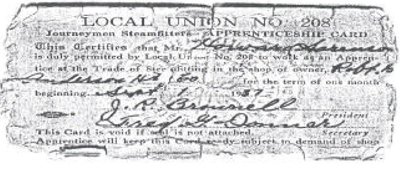 LOCAL UNION NO. 208
Journeymen Steamfitters - APPRENTICESHIP CARD
This Certifies that Mr. Howard Sorenson
is duly permitted by Local Union No. 208 to work as an Appren-
tice at the Trade of Steamfitting in the shop of owner,
Anderson for the term of one month
beginning Sept 193
J. R. Brownell
President
Fred G.
Secretary
This Card is void if seal is not attached.
Apprentice will keep this Card ready subject to demand of shop